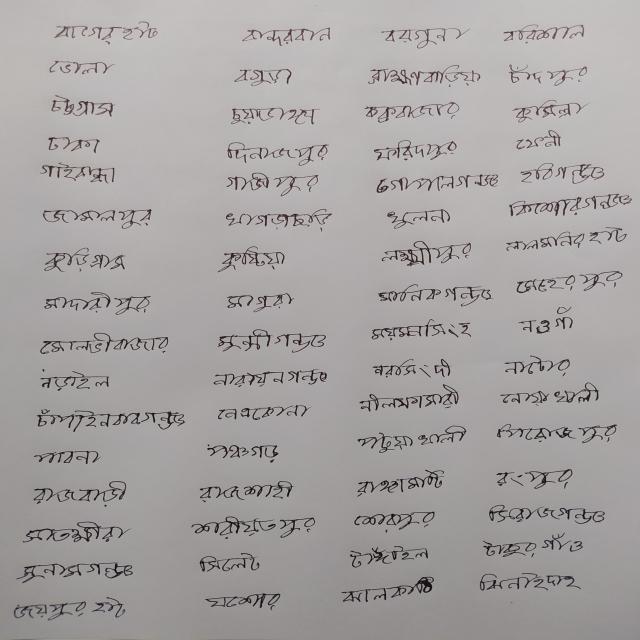 বাগেরহাট বান্দরবান বরগুনা বরিশাল
ভোলা বগুড়া ব্রাহ্মণবাড়িয়া চাঁদপুর
চট্টগ্রাম চুয়াডাঙ্গা কক্সবাজার কুমিল্লা
ঢাকা দিনাজপুর ফরিদপুর ফেনী
গাইবান্ধা গাজীপুর গোপালগন্জ হবিগন্জ
জামালপুর খাগড়াছড়ি খুলনা কিশোরগন্জ
কুড়িগ্রাম কুষ্টিয়া লক্ষ্মীপুর লালমনিরহাট
মাদারীপুর মাগুরা মানিকগন্জ মেহেরপুর
মৌলভীবাজার মুন্সীগন্জ ময়মনসিংহ নওগাঁ
নড়াইল নারায়নগন্জ নরসিংদী নাটোর
চাঁপাইনবাবগন্জ নেত্রকোনা নীলফামারী নোয়াখালী
পাবনা পঞ্চগড় পটুয়াখালী পিরোজপুর
রাজবাড়ী রাজশাহী রাঙ্গামাটি রংপুর
সাতক্ষীরা শরীয়তপুর শেরপুর সিরাজগন্জ
সুনামগন্জ সিলেট টাঙ্গাইল ঠাকুরগাঁও
জয়পুরহাট যশোর ঝালকাঠি ঝিনাইদাহ